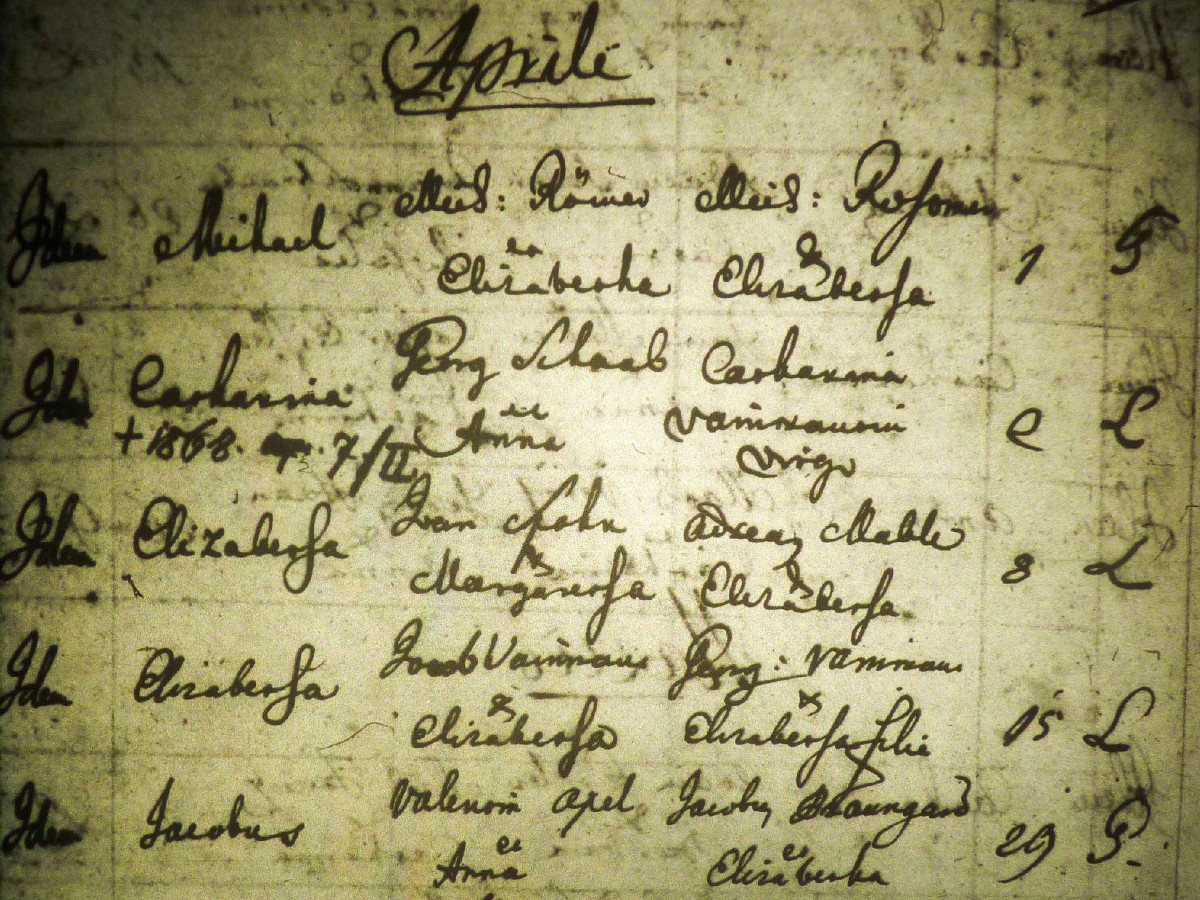 Aprili
Idem Mihael Mich: Römer Mich: Rosomer
et Elizabetha & Elizabetha 1 P
Idem Catharina Georg Schaab Catharina
+ 1868. 7/II et Anna Vainmanin 2 L
Virgo
Idem Elizabetha Ivan Andrea Mahle
& Margaretha & Elizabetha 8 L
Idem Elizabetha Jacob Vainman Georg: Vainman
& Elizabetha & Elizabetha filie 15 L
Idem Jacobus Valentin Apel Jacobus Braungard
et Anna et Elizabetha 29 P.